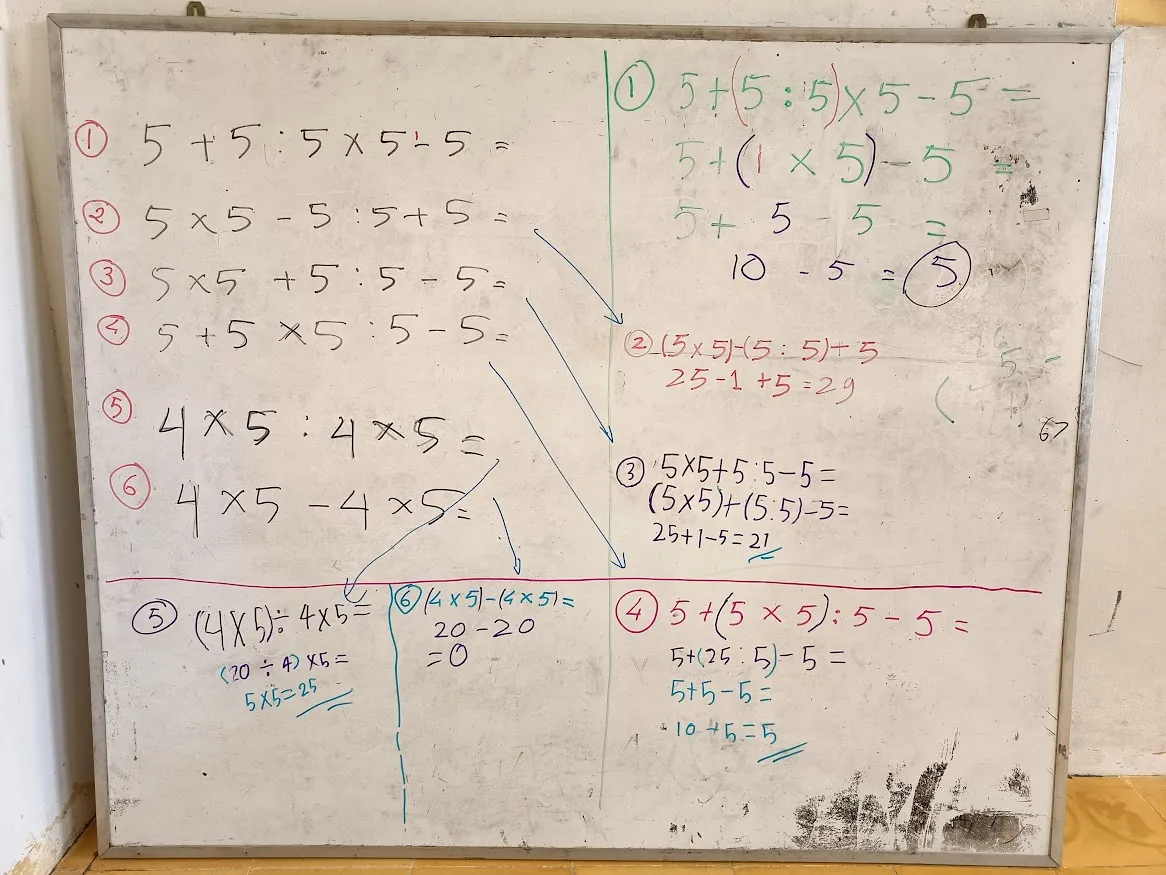 ① 5 + 5 : 5 × 5 - 5 =
② 5 × 5 - 5 : 5 + 5 =
③ 5 × 5 + 5 : 5 - 5 =
④ 5 + 5 × 5 : 5 - 5 =
⑤ 4 × 5 : 4 × 5 =
⑥ 4 × 5 - 4 × 5 =
① 5 + (5 : 5) × 5 - 5 =
5 + (1 × 5) - 5 =
5 + 5 - 5 =
10 - 5 = 5
② (5 × 5) - (5 : 5) + 5
25 - 1 + 5 = 29
③ 5 × 5 + 5 : 5 - 5 =
(5 × 5) + (5 : 5) - 5 =
25 + 1 - 5 = 21
⑤ (4 × 5) ÷ 4 × 5 =
(20 ÷ 4) × 5 =
5 × 5 = 25
⑥ (4 × 5) - (4 × 5) =
20 - 20
= 0
④ 5 + (5 × 5) : 5 - 5 =
5 + (25 : 5) - 5 =
5 + 5 - 5 =
10 + 5 = 5